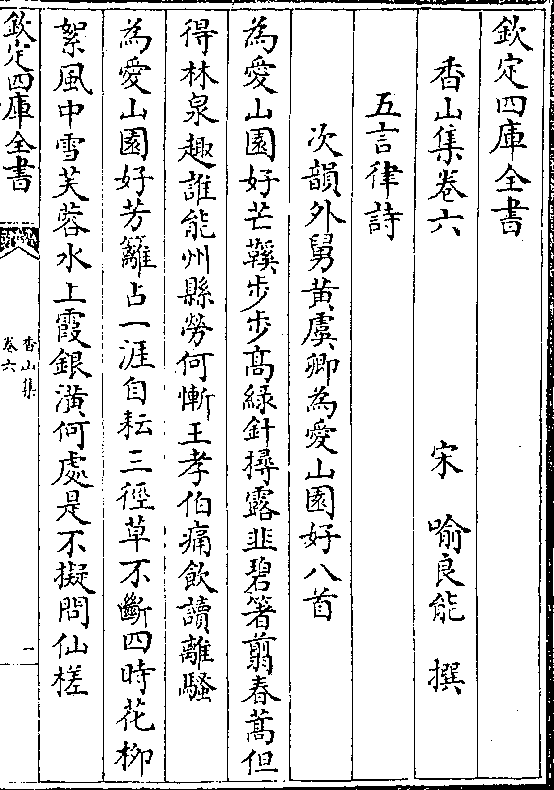 欽定四庫全書
香山集卷六　宋　喻良能　撰
五言律詩
次韻外舅黃虞卿為愛山園好八首
為愛山園好芒鞵步步髙緑針挿露韭碧箸翦春蒿但
得林泉趣誰能州縣勞何慚王孝伯痛飲讀離騷
為愛山園好芳籬占一涯自耘三徑草不斷四時花柳
絮風中雪芙蓉水上霞銀潢何處是不擬問仙槎
欽定四庫全書
香山集
卷六
一